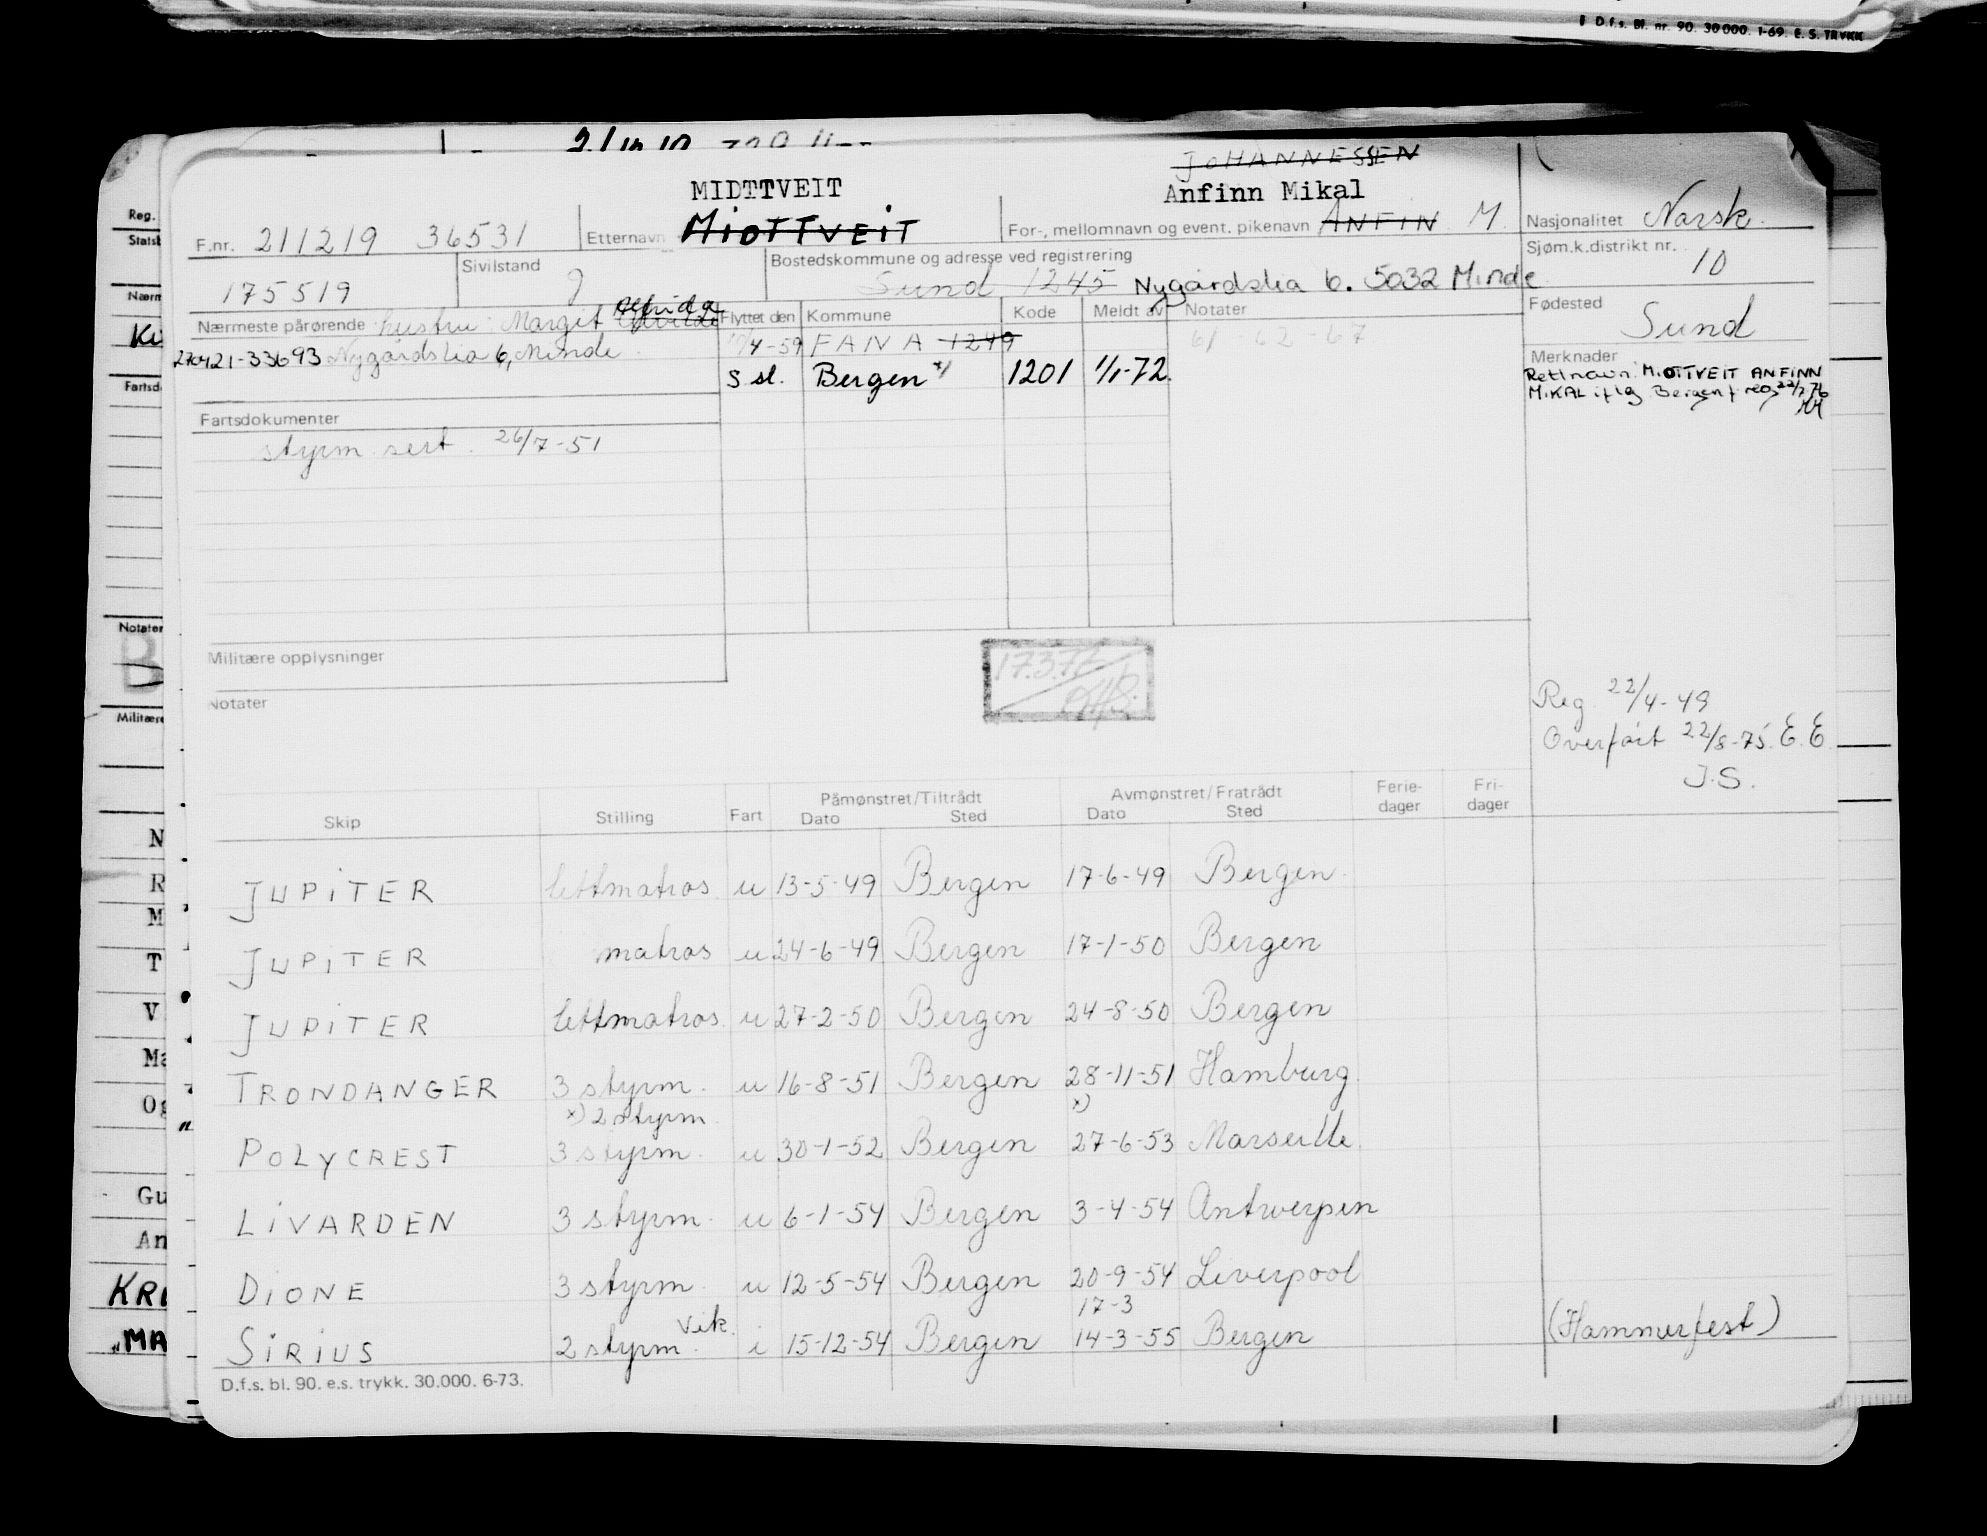 D.f.s. Bl. nr. 90. 30 000. 1-69. E. S. TRYKK
JOHANNESSEN
MIDTTVEIT Anfinn Mikal
F.nr. 211219 36531 Etternavn MIDTTVEIT For-, mellomnavn og event. pikenavn ANFIN M. Nasjonalitet Norsk.
175519 Sivilstand g Bostedskommune og adresse ved registrering Sund 1245 Nygårdslia 6. 5032 Minde Sjøm.k.distrikt nr. 10
Nærmeste pårørende hustru: Margit Alfrida Flyttet den Kommune Kode Meldt av Notater Fødested Sund
270421-33693 Nygårdslia 6, Minde. 4-59 FANA 1249 61 - 62 - 67
s sl. Bergen x) 1201 1/1-72.
Merknader
Rettnavn: MIDTTVEIT ANFINN
MIKAL iflg Bergen f.reg 22/7 76
Fartsdokumenter
styrm. sert. 26/7-51
Militære opplysninger
17.3.72
Notater
Reg. 22/4-49
Overført 22/8-75. E.E.
J.S.
Skip Stilling Fart Påmønstret/Tiltrådt Dato Sted Avmønstret/Fratrådt Dato Sted Ferie-dager Fri-dager
JUPITER lettmatros u 13-5-49 Bergen 17-6-49 Bergen
JUPITER matros u 24-6-49 Bergen 17-1-50 Bergen
JUPITER lettmatros u 27-2-50 Bergen 24-8-50 Bergen
TRONDANGER 3 styrm. u 16-8-51 Bergen 28-11-51 Hamburg.
x) 2 styrm. x)
POLYCREST 3 styrm. u 30-1-52 Bergen 27-6-53 Marseille
LIVARDEN 3 styrm. u 6-1-54 Bergen 3-4-54 Antwerpen
DIONE 3 styrm. u 12-5-54 Bergen 20-9-54 Liverpool
Vik. 17-3
SIRIUS 2 styrm. i 15-12-54 Bergen 14-3-55 Bergen (Hammerfest)
D.f.s. bl. 90. e.s. trykk. 30.000. 6-73.
Reg.
Notater
N
R
M
T
V
Gu
An
KRI
"MA